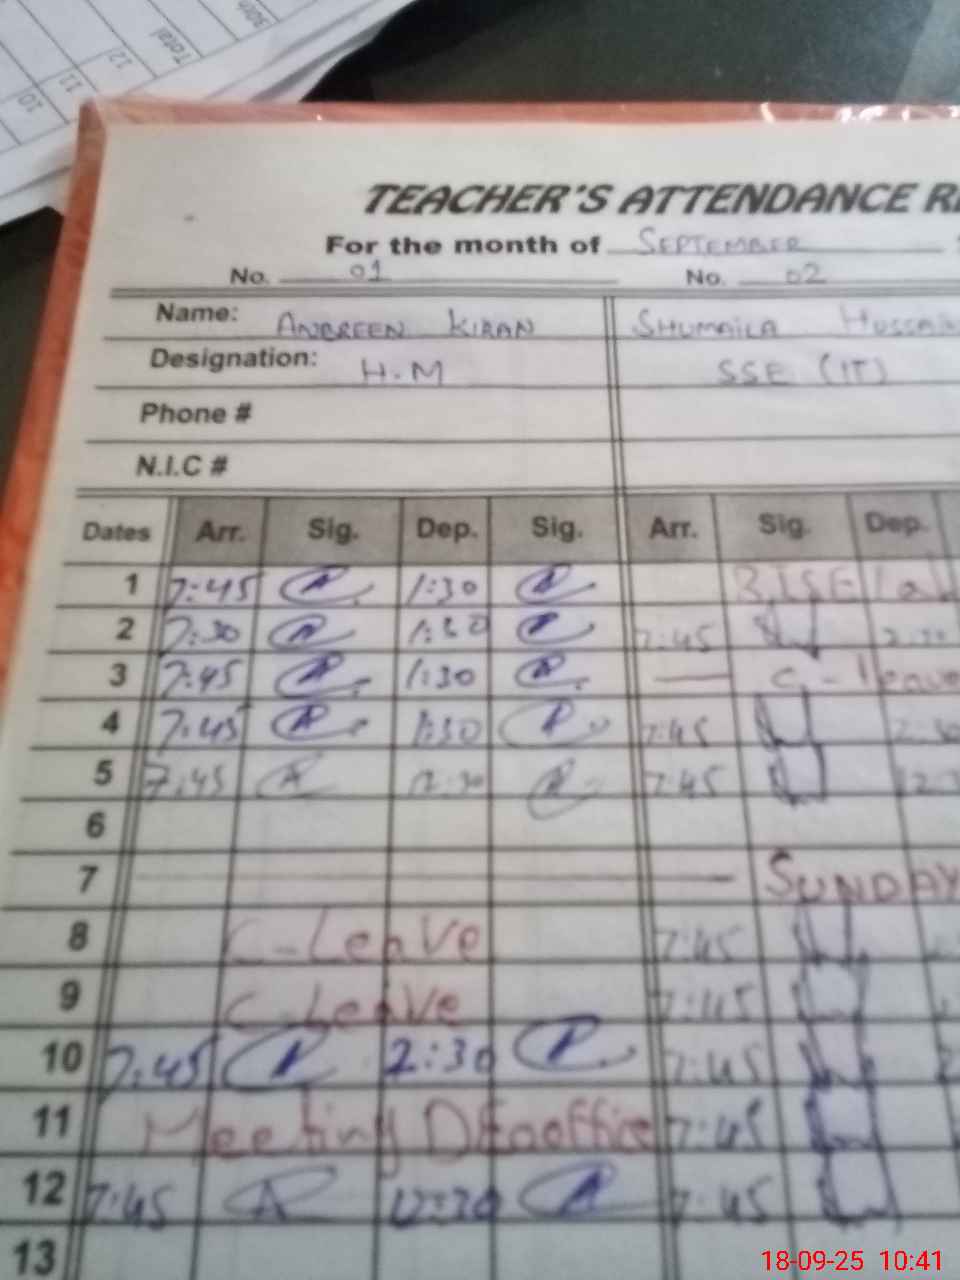 30th
Total
12
11
10
TEACHER'S ATTENDANCE RE
For the month of SEPTEMBER
No. 01 No. 02
Name: ANBREEN KIRAN SHUMAILA HUSSAIN
Designation: H.M SSE (IT)
Phone #
N.I.C #
Dates Arr. Sig. Dep. Sig. Arr. Sig. Dep.
1 7:45 1:30 BISE Lah
2 7:30 1:30 7:45
3 7:45 1:30 — C-leave
4 7:45 1:30 7:45
5 7:45 12:30 7:45 12:3
6
7 SUNDAY
8 C-Leave 7:45
9 C-Leave 7:45
10 7:45 2:30 7:45 2
11 Meeting DEO office 7:45
12 7:45 12:30 7:45
13
18-09-25 10:41